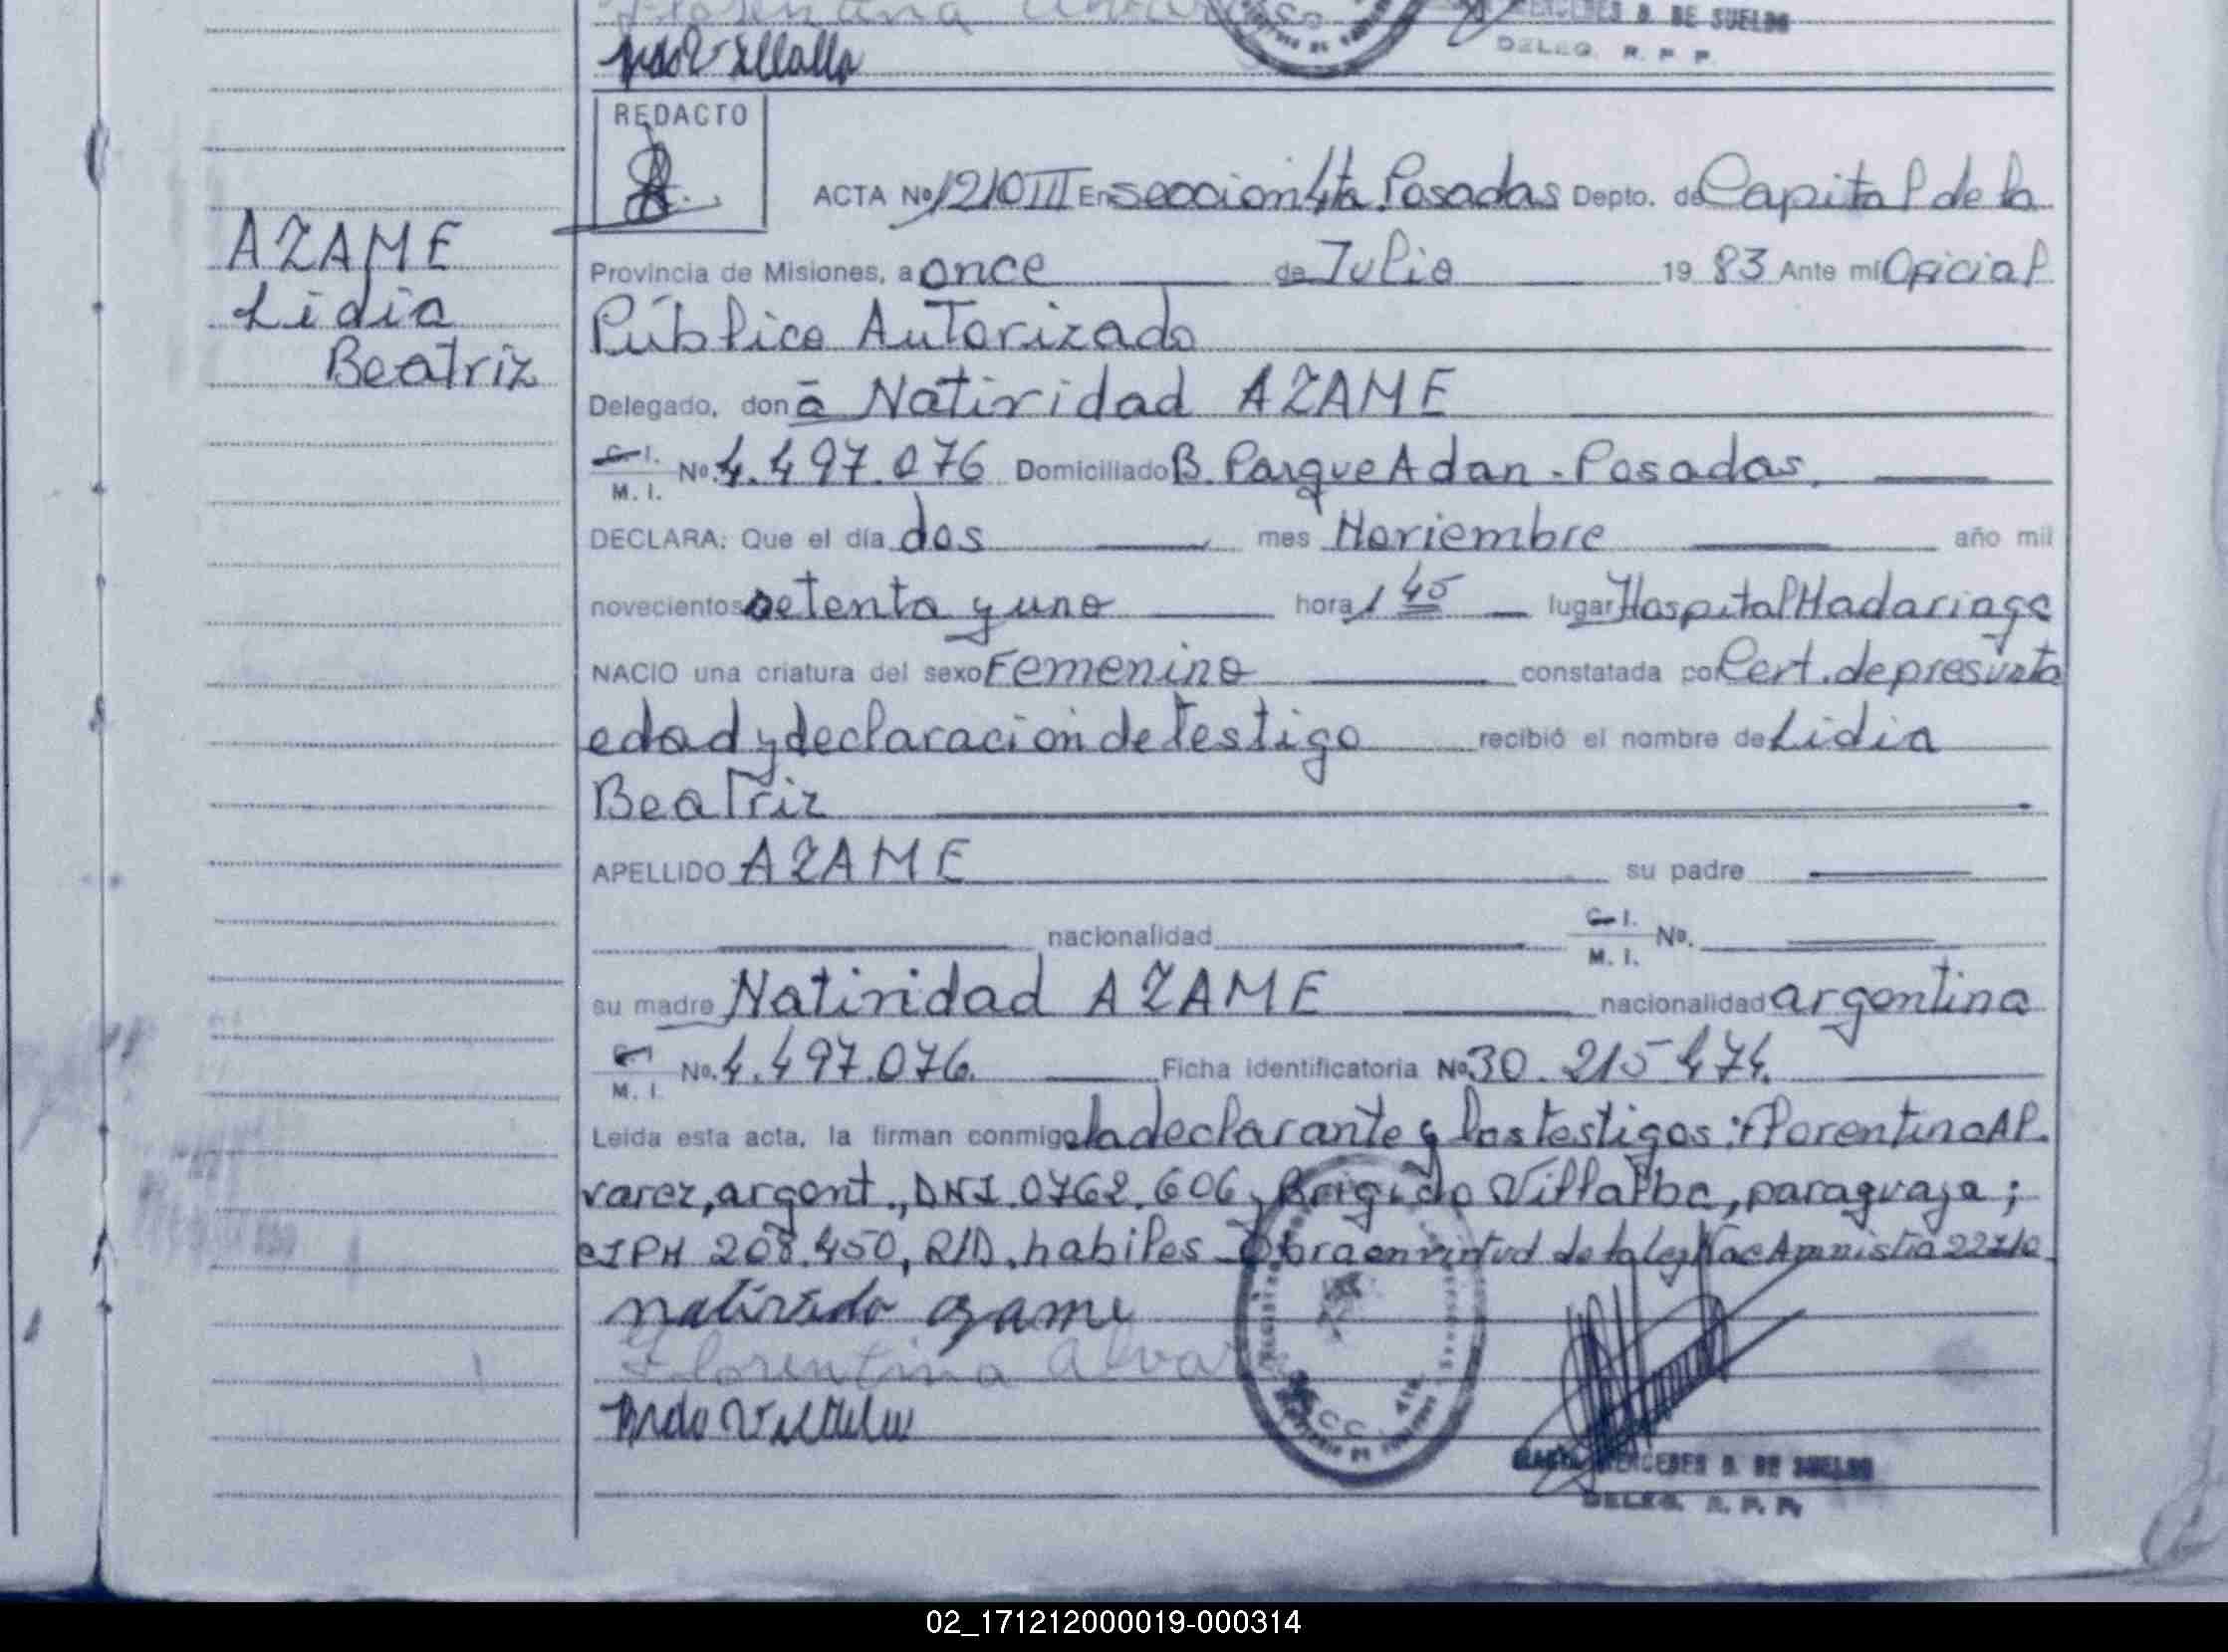 Florentina Alvar
MERCEDES D. DE SUELDO
DELEG. R. P. P.
REDACTO
ACTA Nº 1210 III En seccion 4ta. Posadas Depto. de Capital de la
AZAME
Lidia
Beatriz
Provincia de Misiones, a once de Julio 19 83 Ante mí Oficial
Público Autorizado
Delegado, don ā Natividad AZAME
C. I. M. I. Nº. 4.497.076 Domiciliado B. Parque Adan - Posadas.
DECLARA: Que el día dos mes Noviembre año mil
novecientos setenta y uno hora 1 45 lugar Hospital Madariaga
NACIO una criatura del sexo Femenino constatada por Cert. de presunta
edad y declaracion de Testigo recibió el nombre de Lidia
Beatriz
APELLIDO AZAME su padre
nacionalidad C. I. M. I. Nº.
su madre Natividad AZAME nacionalidad argentina
C. I. M. I. Nº. 4.497.076. Ficha identificatoria Nº 30.215.474.
Leída esta acta, la firman conmigo la declarante y los testigos: Florentina Al-
varez, argent., DNI. 0762.606, Brigido Villalba, paraguaya;
CIPM 208.450, R/D. habiles - Obra en virtud de la ley Nac Amnistia
natividad azame
Florentina Alvar
MERCEDES D. DE SUELDO
DELEG. R. P. P.
02_171212000019-000314